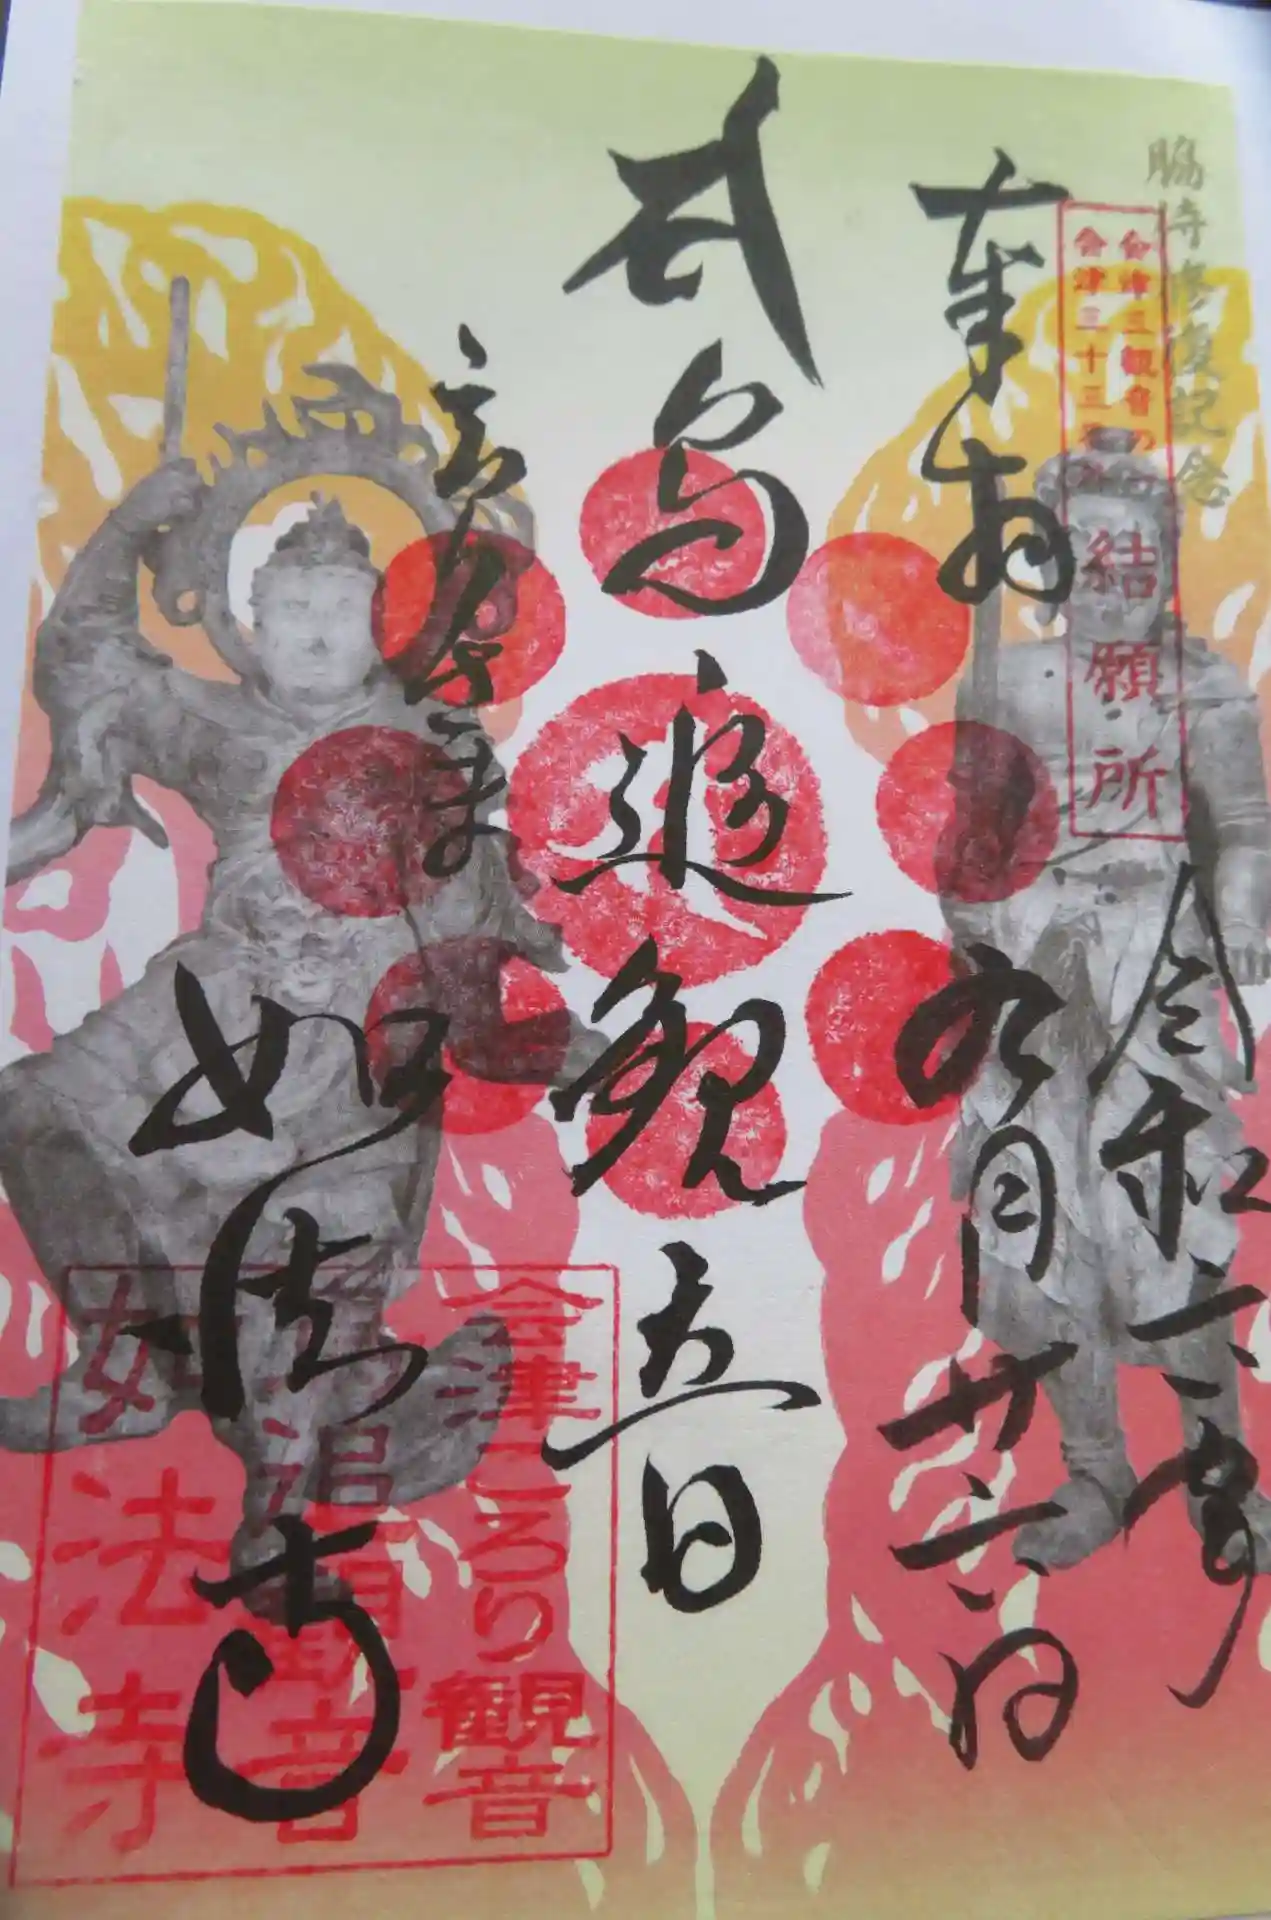 脇侍修復記念
会津三観音の
会津三十三
結願所
奉拝
令和
年
九月廿
日
鳥追観音
如法寺
会津ころり観音
鳥追観音
如法寺